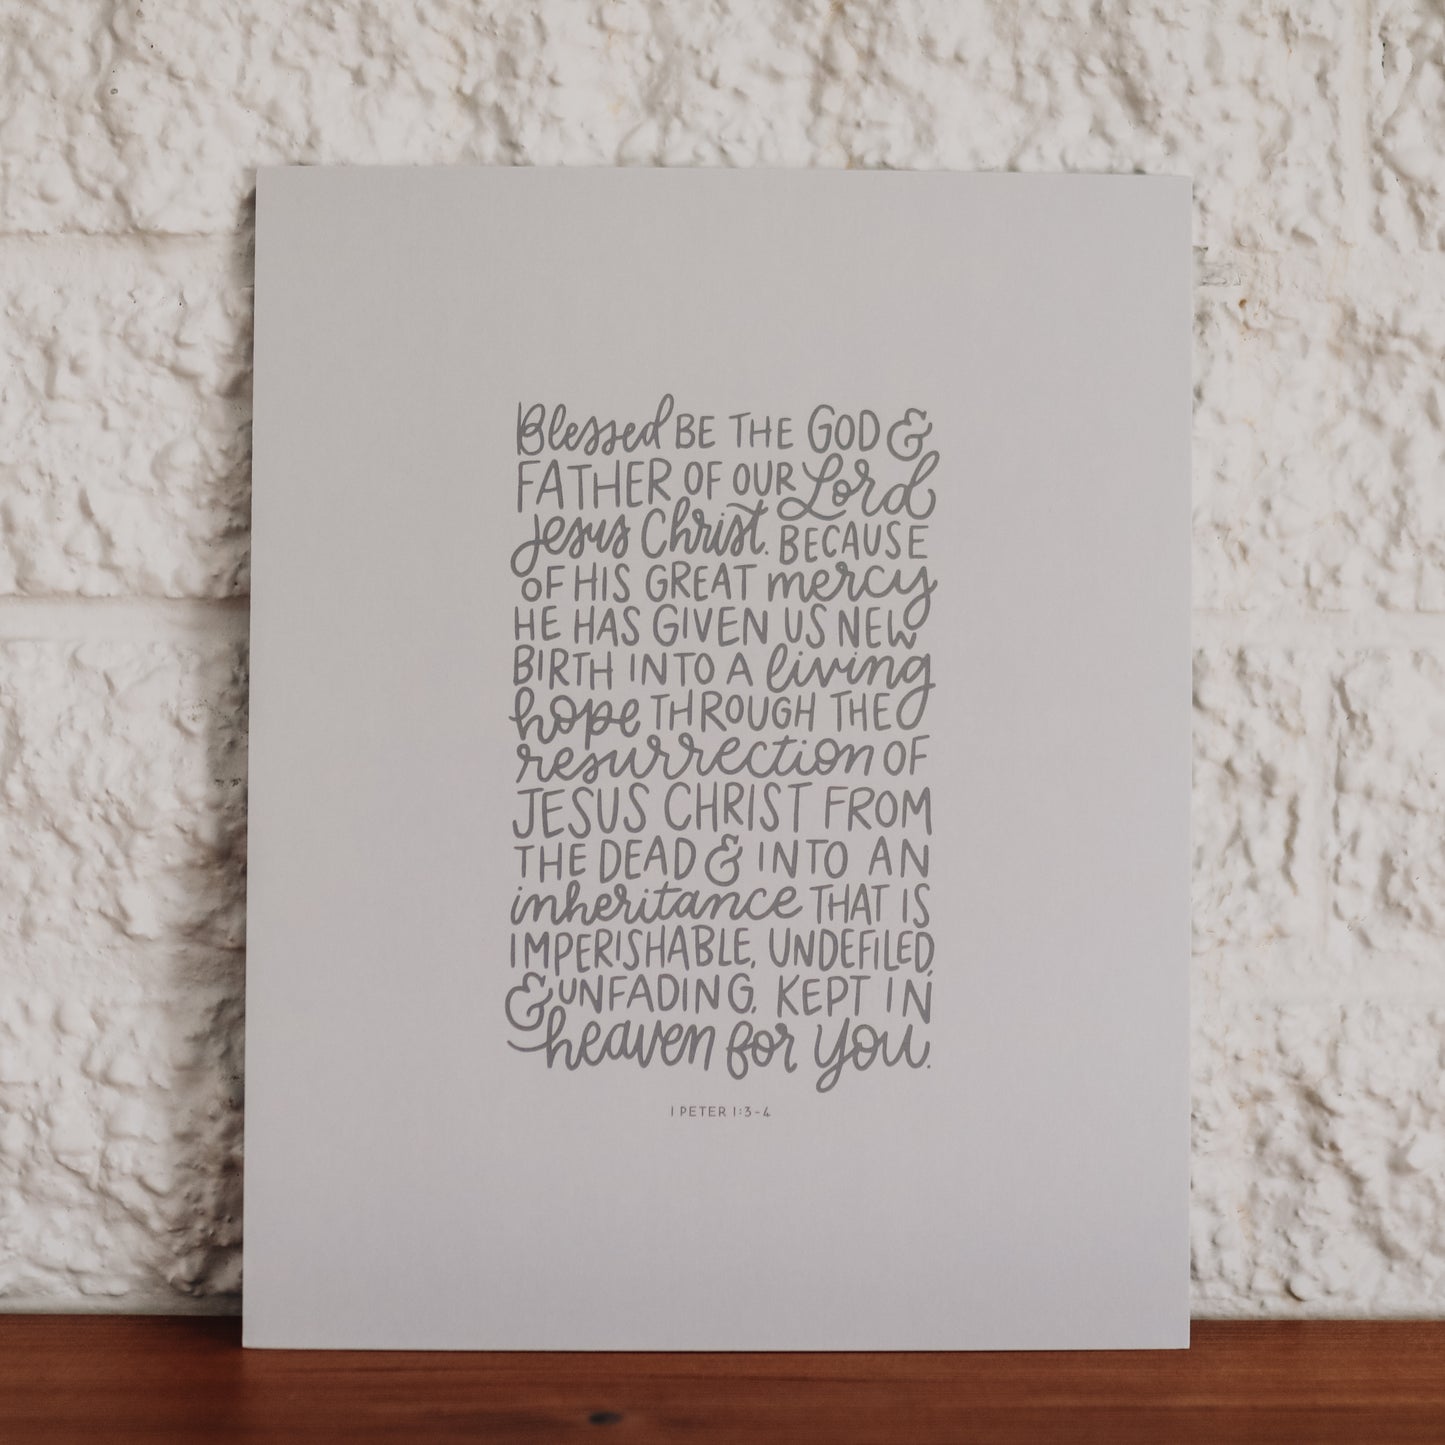 Blessed BE THE GOD &
FATHER OF OUR Lord
Jesus Christ. BECAUSE
OF HIS GREAT mercy
HE HAS GIVEN US NEW
BIRTH INTO A living
hope THROUGH THE
resurrection OF
JESUS CHRIST FROM
THE DEAD & INTO AN
inheritance THAT IS
IMPERISHABLE, UNDEFILED,
& UNFADING, KEPT IN
heaven for you.
1 PETER 1:3-4